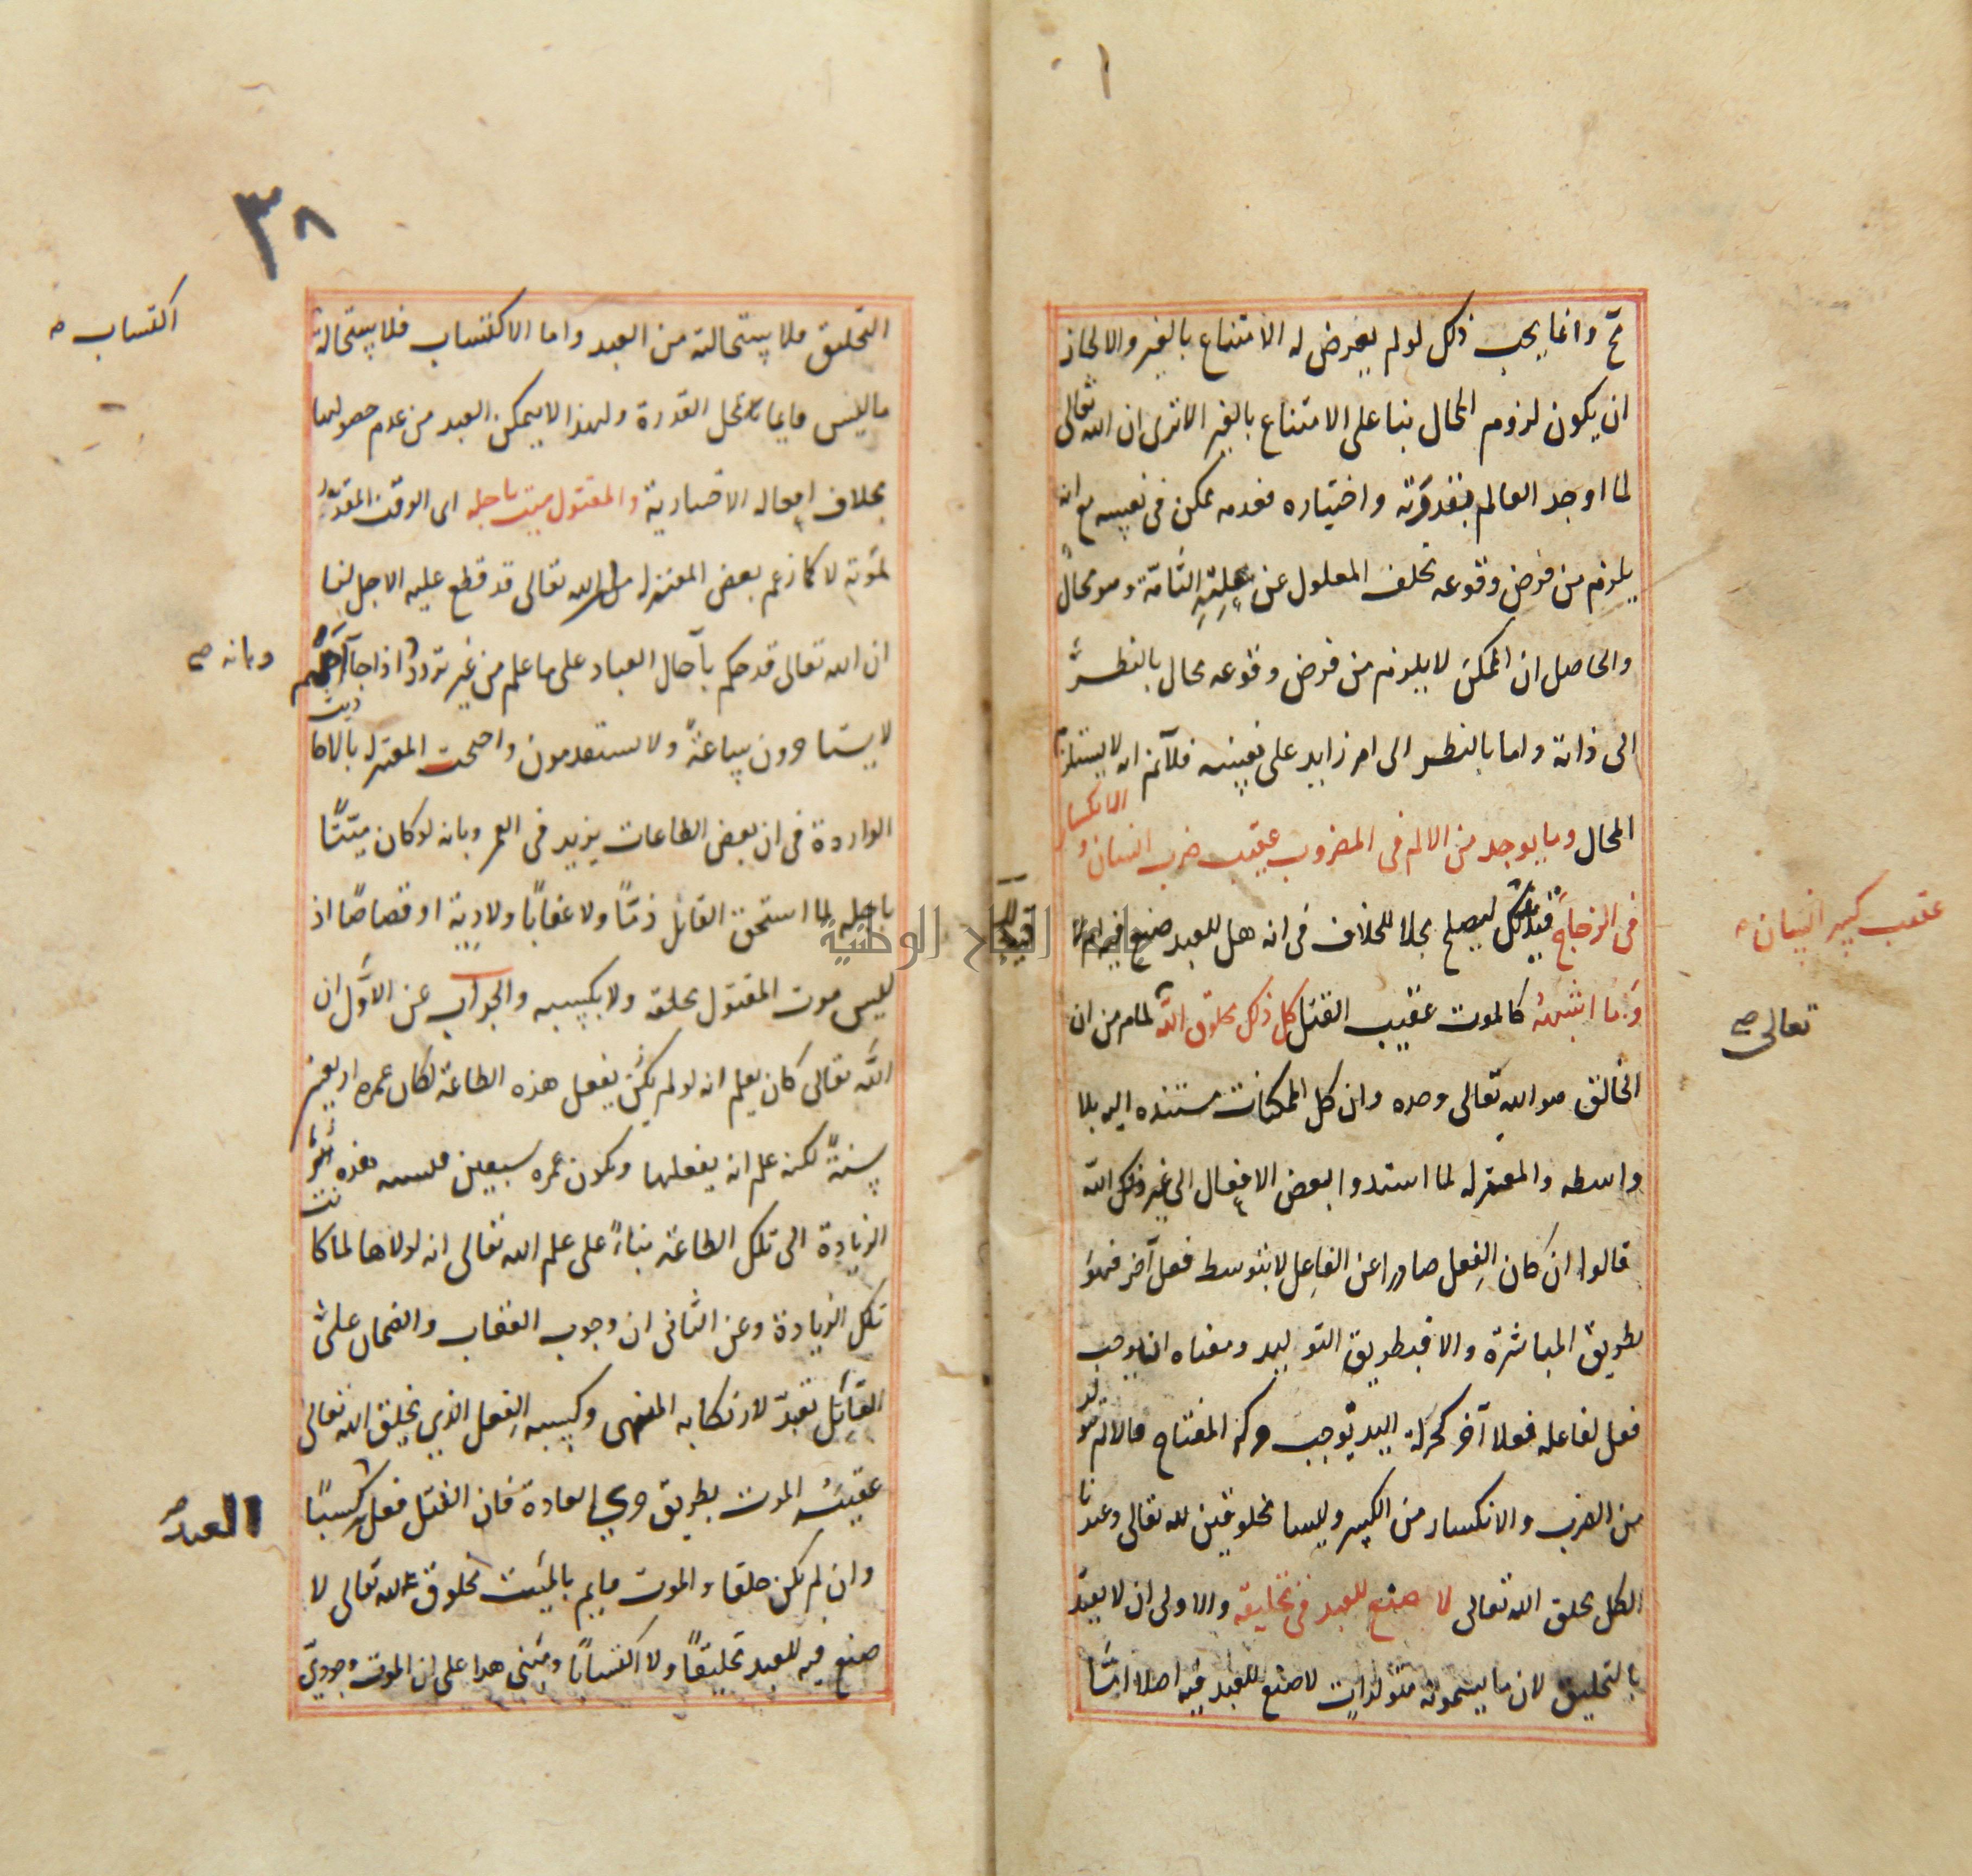 مح وانما يجب ذلك لو لم يعرض له الامتناع بالغير والا لجاز
ان يكون لزوم المحال بنا على الامتناع بالغير الا ترى ان الله تعالى
لما اوجد العالم بقدرته واختياره فعدمه ممكن فى نفسه مع انه
يلزم من فرض وقوعه تخلف المعلول عن علته التامّة وهو محال
والحاصل ان الممكن لا يلزم من فرض وقوعه محال بالنظر
الى ذاته واما بالنظر الى امر زايد على نفسه فلا نم انه لا يستلزم
المحال وما يوجد من الالم فى المضروب عقيب ضرب انسان والانكسار
فى الزجاج قيد بذلك ليصلح محلا للخلاف فى انه هل للعبد صنع فيه ام لا
عقيب كسر انسان صح
وما اشبهه كالموت عقيب القتل كل ذلك مخلوق الله لما مر من ان
تعالى صح
الخالق هو الله تعالى وحده وان كل الممكنات مستنده اليه بلا
واسطه والمعتزله لما اسندوا بعض الافعال الى غير ذلك الله
قالوا ان كان الفعل صادرا عن الفاعل لا بتوسط فعل آخر فهو
بطريق المباشرة والا فبطريق التوليد ومعناه ان يوجب
فعل لفاعله فعلا آخر كحركة اليد توجب حركه المفتاح فالالم متولد
من الضرب والانكسار من الكسر وليسا مخلوقين لله تعالى وعندنا
الكل بخلق الله تعالى لا صنع للعبد فى تخليقه والاولى ان لا يقيد
بالتخليق لان ما يسمونه متولدات لا صنع للعبد فيه اصلا امّا
٣٨
التخليق فلاستحالته من العبد واما الاكتساب فلاستحالة
اكتساب صح
ما ليس قايما بمحل القدرة ولهذا لا يتمكن العبد من عدم حصولها
بخلاف افعاله الاختيارية والمقتول ميت باجله اى الوقت المقدر
لموته لا كما زعم بعض المعتزله من ان الله تعالى قد قطع عليه الاجل لنا
ان الله تعالى قد حكم بآجال العباد على ما علم من غير تردد اذا جا آجلهم
وبانه صح
لا يستاخرون ساعةً ولا يستقدمون واحتجت المعتزله بالاحاديث
الواردة فى ان بعض الطاعات يزيد فى العمر وبانه لو كان ميتًا
باجله لما استحق القاتل ذمًّا ولا عقابًا ولا دية او قصاصًا اذ
ليس موت المقتول بخلقه ولا بكسبه والجواب عن الاوّل ان
الله تعالى كان يعلم انه لو لم يكن يفعل هذه الطاعة لكان عمره اربعين
سنةً لكنه علم انه يفعلها ويكون عمره سبعين فنسب هذه
الزيادة الى تلك الطاعة بناءً على علم الله تعالى انه لولاها لما كانت
تلك الزيادة وعن الثانى ان وجوب العقاب والضمان على
القاتل تعبدّ لارتكابه المنهى وكسبه الفعل الذي يخلق الله تعالى
عقيبه الموت بطريق جري العادة فان القتل فعل كسبًا
العبد صح
وان لم يكن خلقا والموت قايم بالميت مخلوق لله تعالى لا
صنع فيه للعبد تخليقًا ولا اكتسابًا ومبنى هذا على ان الموت وجودىّ